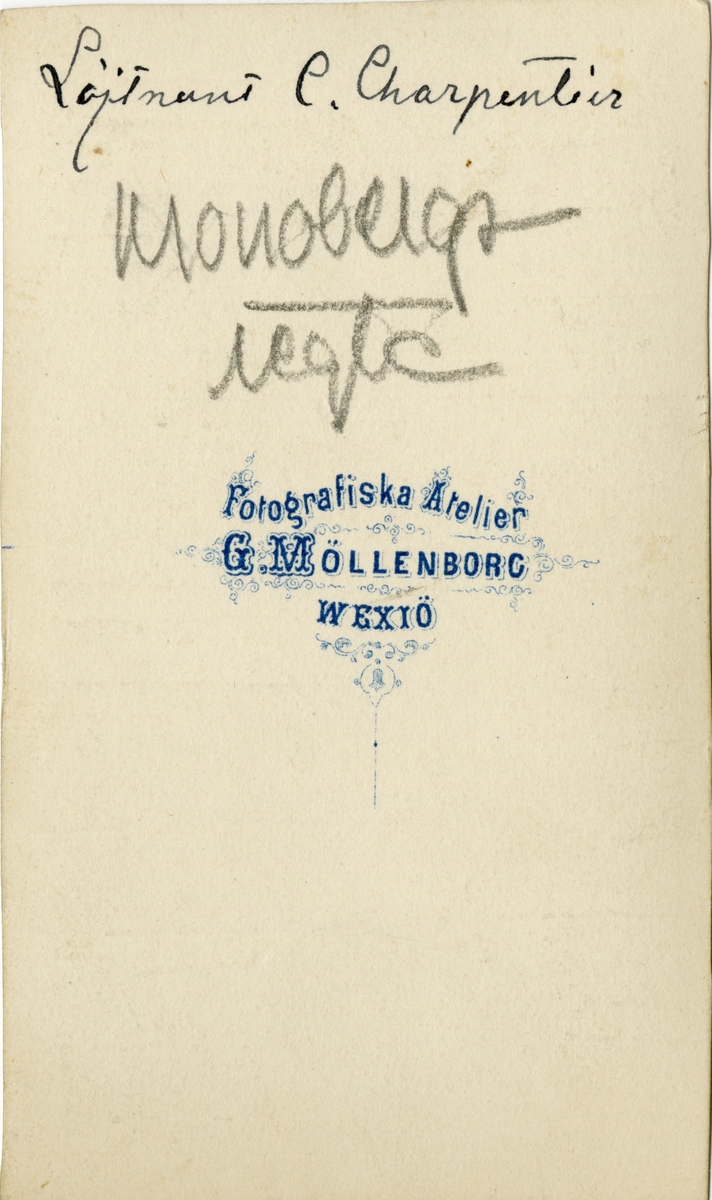 Löjtnant C. Charpentier
Kronobergs
regte
Fotografiska Atelier
G. MÖLLENBORG
WEXIÖ